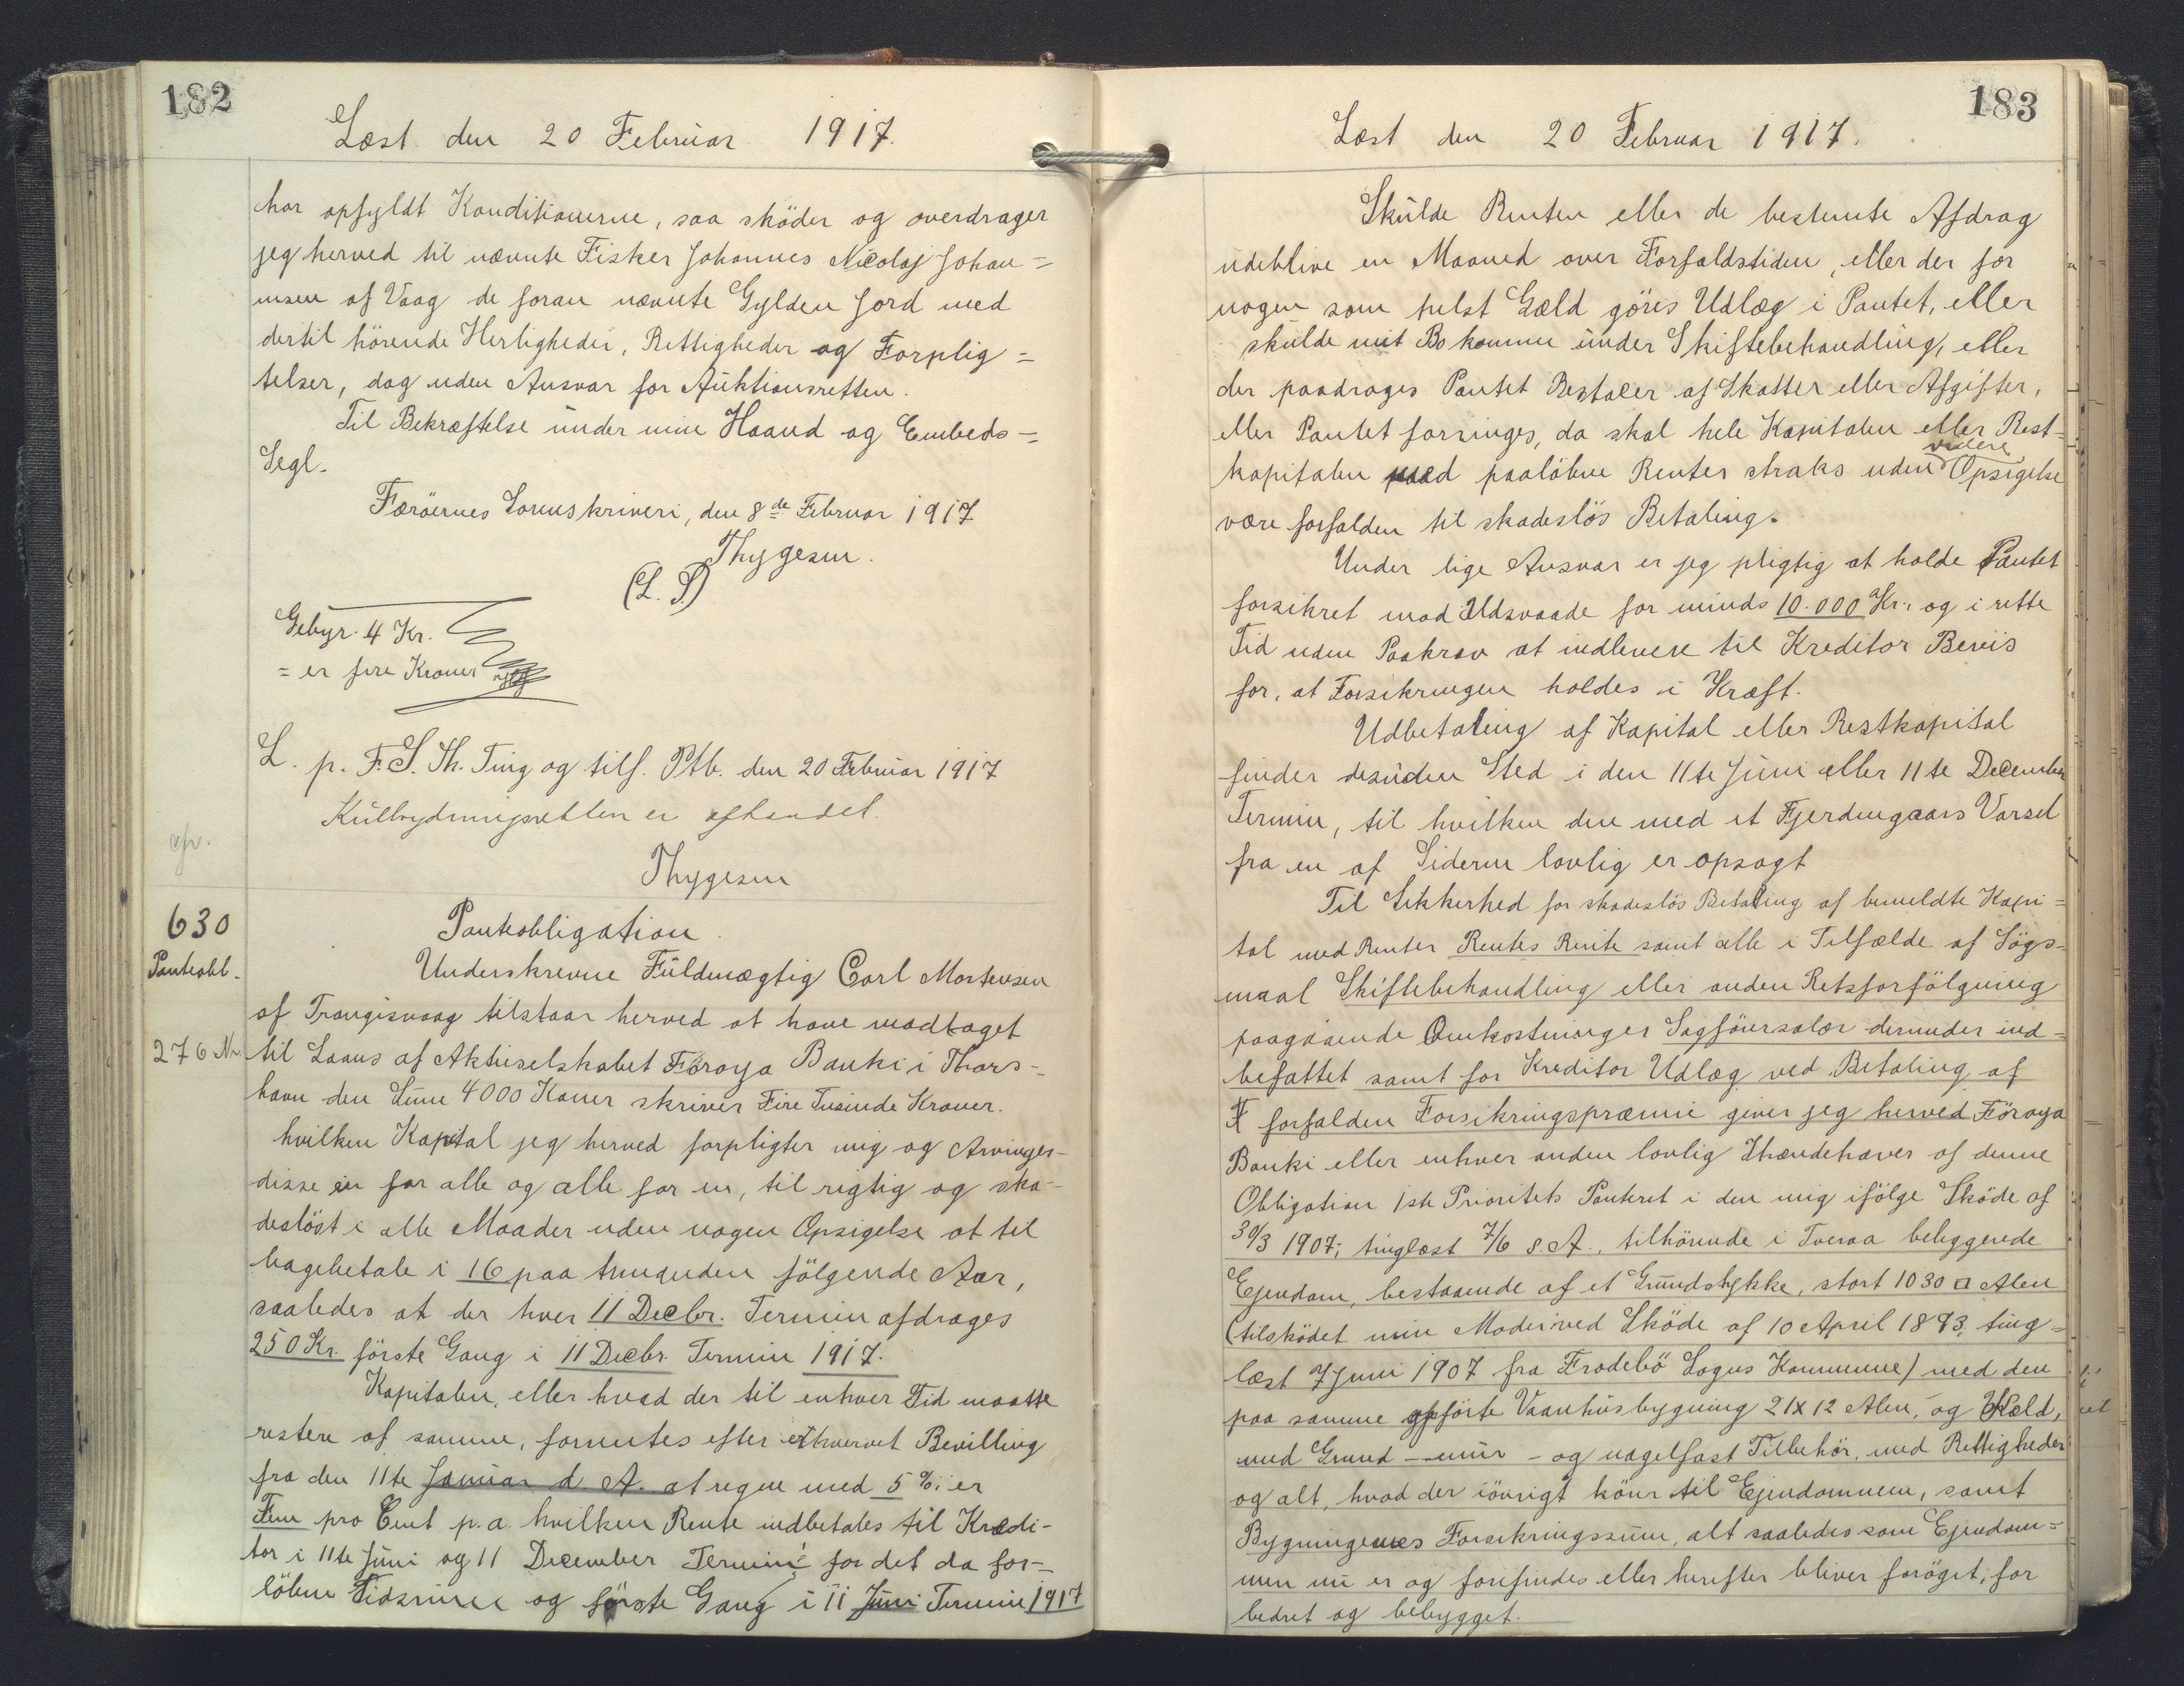 182
Læst den 20 Februar 1917.
har opfyldt Konditionerne, saa sköder og overdrager
jeg herved til nævnte Fisker Johannes Nicolaj Johan=
nsen af Vaag de foran nævnte Gylden Jord med
dertil hörende Herligheder, Rettigheder og Forplig=
telser, dog uden Ansvar for Auktionsretten.
Til Bekræftelse under min Haand og Embeds=
Segl.
Færöernes Sorenskriveri, den 8de Februar 1917
Thygesen.
(L. S.)
Gebyr. 4 Kr.
= er fire Kroner
L. p. F. S. Th. Ting og tilf. Ptb. den 20 Februar 1917
Kulbrydningsretten er afhændet.
Thygesen
630
Panteobl.
276 Nr.
Panteobligation.
Underskrevne Fuldmægtig Carl Mortensen
af Trangisvaag tilstaar herved at have modtaget
til Laans af Aktieselskabet Föroya Banki i Thors=
havn den Sum 4000 Koner skriver Fire Tusinde Kroner.
hvilken Kapital jeg herved forpligter mig og Arvinger-
disse en for alle og alle for en, til rigtig og ska-
deslöst i alle Maader uden nogen Opsigelse at til
bagebetale i 16 paa hinanden fölgende Aar,
saaledes at der hver 11 Decbr. Termin afdrages
250 Kr. förste Gang i 11 Decbr. Termin 1917.
Kapitalen, eller hvad der til enhver Tid maatte
restere af samme, forrentes efter erhvervet Bevilling
fra den 11te Januar d. A. at regne med 5 %: er
Fem pro Cent p. a. hvilken Rente indbetales til Kredi-
tor i 11te Juni og 11 December Termin for det da for-
löbne Tidsrum og förste Gang i 11 Juni Termin 1917
183
Læst den 20 Februar 1917.
Skulde Renten eller de bestemte Afdrag
udeblive en Maaned over Forfaldstiden, eller der for
nogen som helst Gæld göres Udlæg i Pantet, eller
skulde mit Bo komme under Skiftebehandling, eller
der paadrages Pantet Restacer af Skatter eller Afgifter,
eller Pantet forringes, da skal hele Kapitalen eller Rest=
kapitalen med paalöbne Renter straks uden videre Opsigelse
være forfalden til skadeslös Betaling.
Under lige Ansvar er jeg pligtig at holde Pantet
forsikret mod Ildsvaade for minds 10.000 Kr., og i rette
Tid uden Paakrav at indlevere til Kreditor Bevis
for, at Forsikringen holdes i Kraft.
Udbetaling af Kapital eller Restkapital
finder desuden Sted i den 11te Juni eller 11te December
Termin, til hvilken den med et Fjerdingaars Varsel
fra en af Siderne lovlig er opsagt
Til Sikkerhed for skadeslös Betaling af bemeldte Kapi=
tal med Renter Rentes Rente samt alle i Tilfælde af Sögs=
maal Skiftebehandling eller anden Retsforfölgning
paagaaende Omkostninger Sagförersalær derunder ind=
befattet samt for Kreditor Udlæg ved Betaling af
forfalden Forsikringspræmie giver jeg herved Föroya
Banki eller enhver anden lovlig Ihændehaver af denne
Obligation 1ste Prioritets Panteret i den mig ifölge Sköde af
30/3 1907, tinglæst 7/6 s. A., tilhörende i Tveraa beliggende
Ejendom, bestaaende af et Grundstykke, stort 1030 □ Alen
(tilsködet min Moder ved Sköde af 10 April 1893, ting=
læst 7 Juni 1907 fra Frodebö Sogns Kommune) med den
paa samme opförte Vaanhusbygning 21x12 Alen, og Kæld,
med Grund - mur - og nagelfast Tilbehör, med Rettigheder
og alt, hvad der iövrigt hörer til Ejendommen, samt
Bygningernes Forsikringssum, alt saaledes som Ejendom=
men nu er og forefindes eller herefter bliver foröget, for
bedret og bebygget.